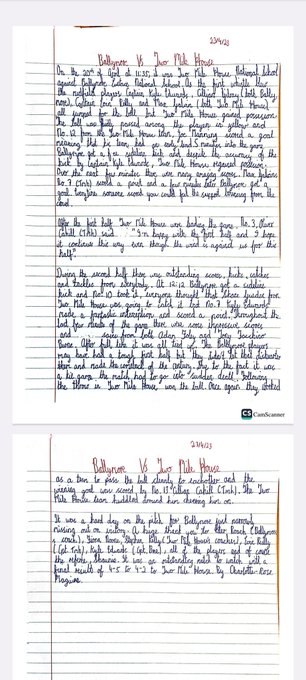 23/4/23
Ballymore Vs Two Mile House
On the 20th of April at 11:35, it was Two Mile House National School
against Ballymore Eustace National School. As the first whistle blew
the midfield players Captain Kyle Edwards, Callum (both Bally
more) Captain Eoin Reilly and Max (both Two Mile House)
all jumped for the ball but Two Mile House gained possession.
The ball was being passed among the players in yellow and
No. 12 from the Two Mile House team, Joe Manning scored a goal
meaning that his team had 3 points into the game.
Ballymore got a free and despite the accuracy of the
kick by Captain Kyle Edwards, Two Mile House regained possession.
Over the next few minutes there were many scores. Max
No. 7 (Tmh) scored a point and a few minutes later Ballymore got a
goal. someone scored you could feel the support coming from the
crowd.
After the first half Two Mile House were leading the game. No. 3, Oliver
Cahill (Tmh) said "I'm happy with the first half and I hope
it continues this way even though the wind is against us for this
half".
During the second half there was outstanding scores, kicks, catches
and tackles from everybody. At 12:12 Ballymore got a
kick and No. 10 took it, everyone thought that those from
Two Mile House were going to catch it but No. 7 Kyle Edwards
made a fantastic interception and scored a point. Throughout the
last few minutes of the game there were some impressive scores
and saves from both and
After full time it was all tied up. The Ballymore players
may have had a tough first half but they didn't let that
them and made the comeback of the century. Due to the fact it was
a tie game the match had to go into "sudden death". Following
the throw in Two Mile House won the ball. Once again they worked
CS CamScanner
23/4/23
Ballymore Vs Two Mile House
as a team to pass the ball cleanly to eachother and the
winning goal was scored by No. 13 Cahill (Tmh). The Two
Mile House team huddled around him cheering him on.
It was a hard day on the pitch for Ballymore just
missing out on victory. A huge thank you to Roach (Ballymore
coach), Fiona Stephen Reilly (Two Mile House coaches), Eoin Reilly
(Cpt. Tmh), Kyle Edwards (Cpt. Bm), all of the players and of course
the referee, It was an outstanding match to watch with a
final results of 4-5 to 4-2 to Two Mile House. By Charlotte-Rose
Maguire.